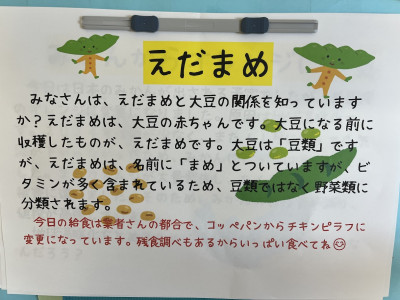 えだまめ
みなさんは、えだまめと大豆の関係を知っています
か？えだまめは、大豆の赤ちゃんです。大豆になる前に
収穫したものが、えだまめです。大豆は「豆類」です
が、えだまめは、名前に「まめ」とついていますが、ビ
タミンが多く含まれているため、豆類ではなく野菜類に
分類されます。
今日の給食は業者さんの都合で、コッペパンからチキンピラフに
変更になっています。残食調べもあるからいっぱい食べてね